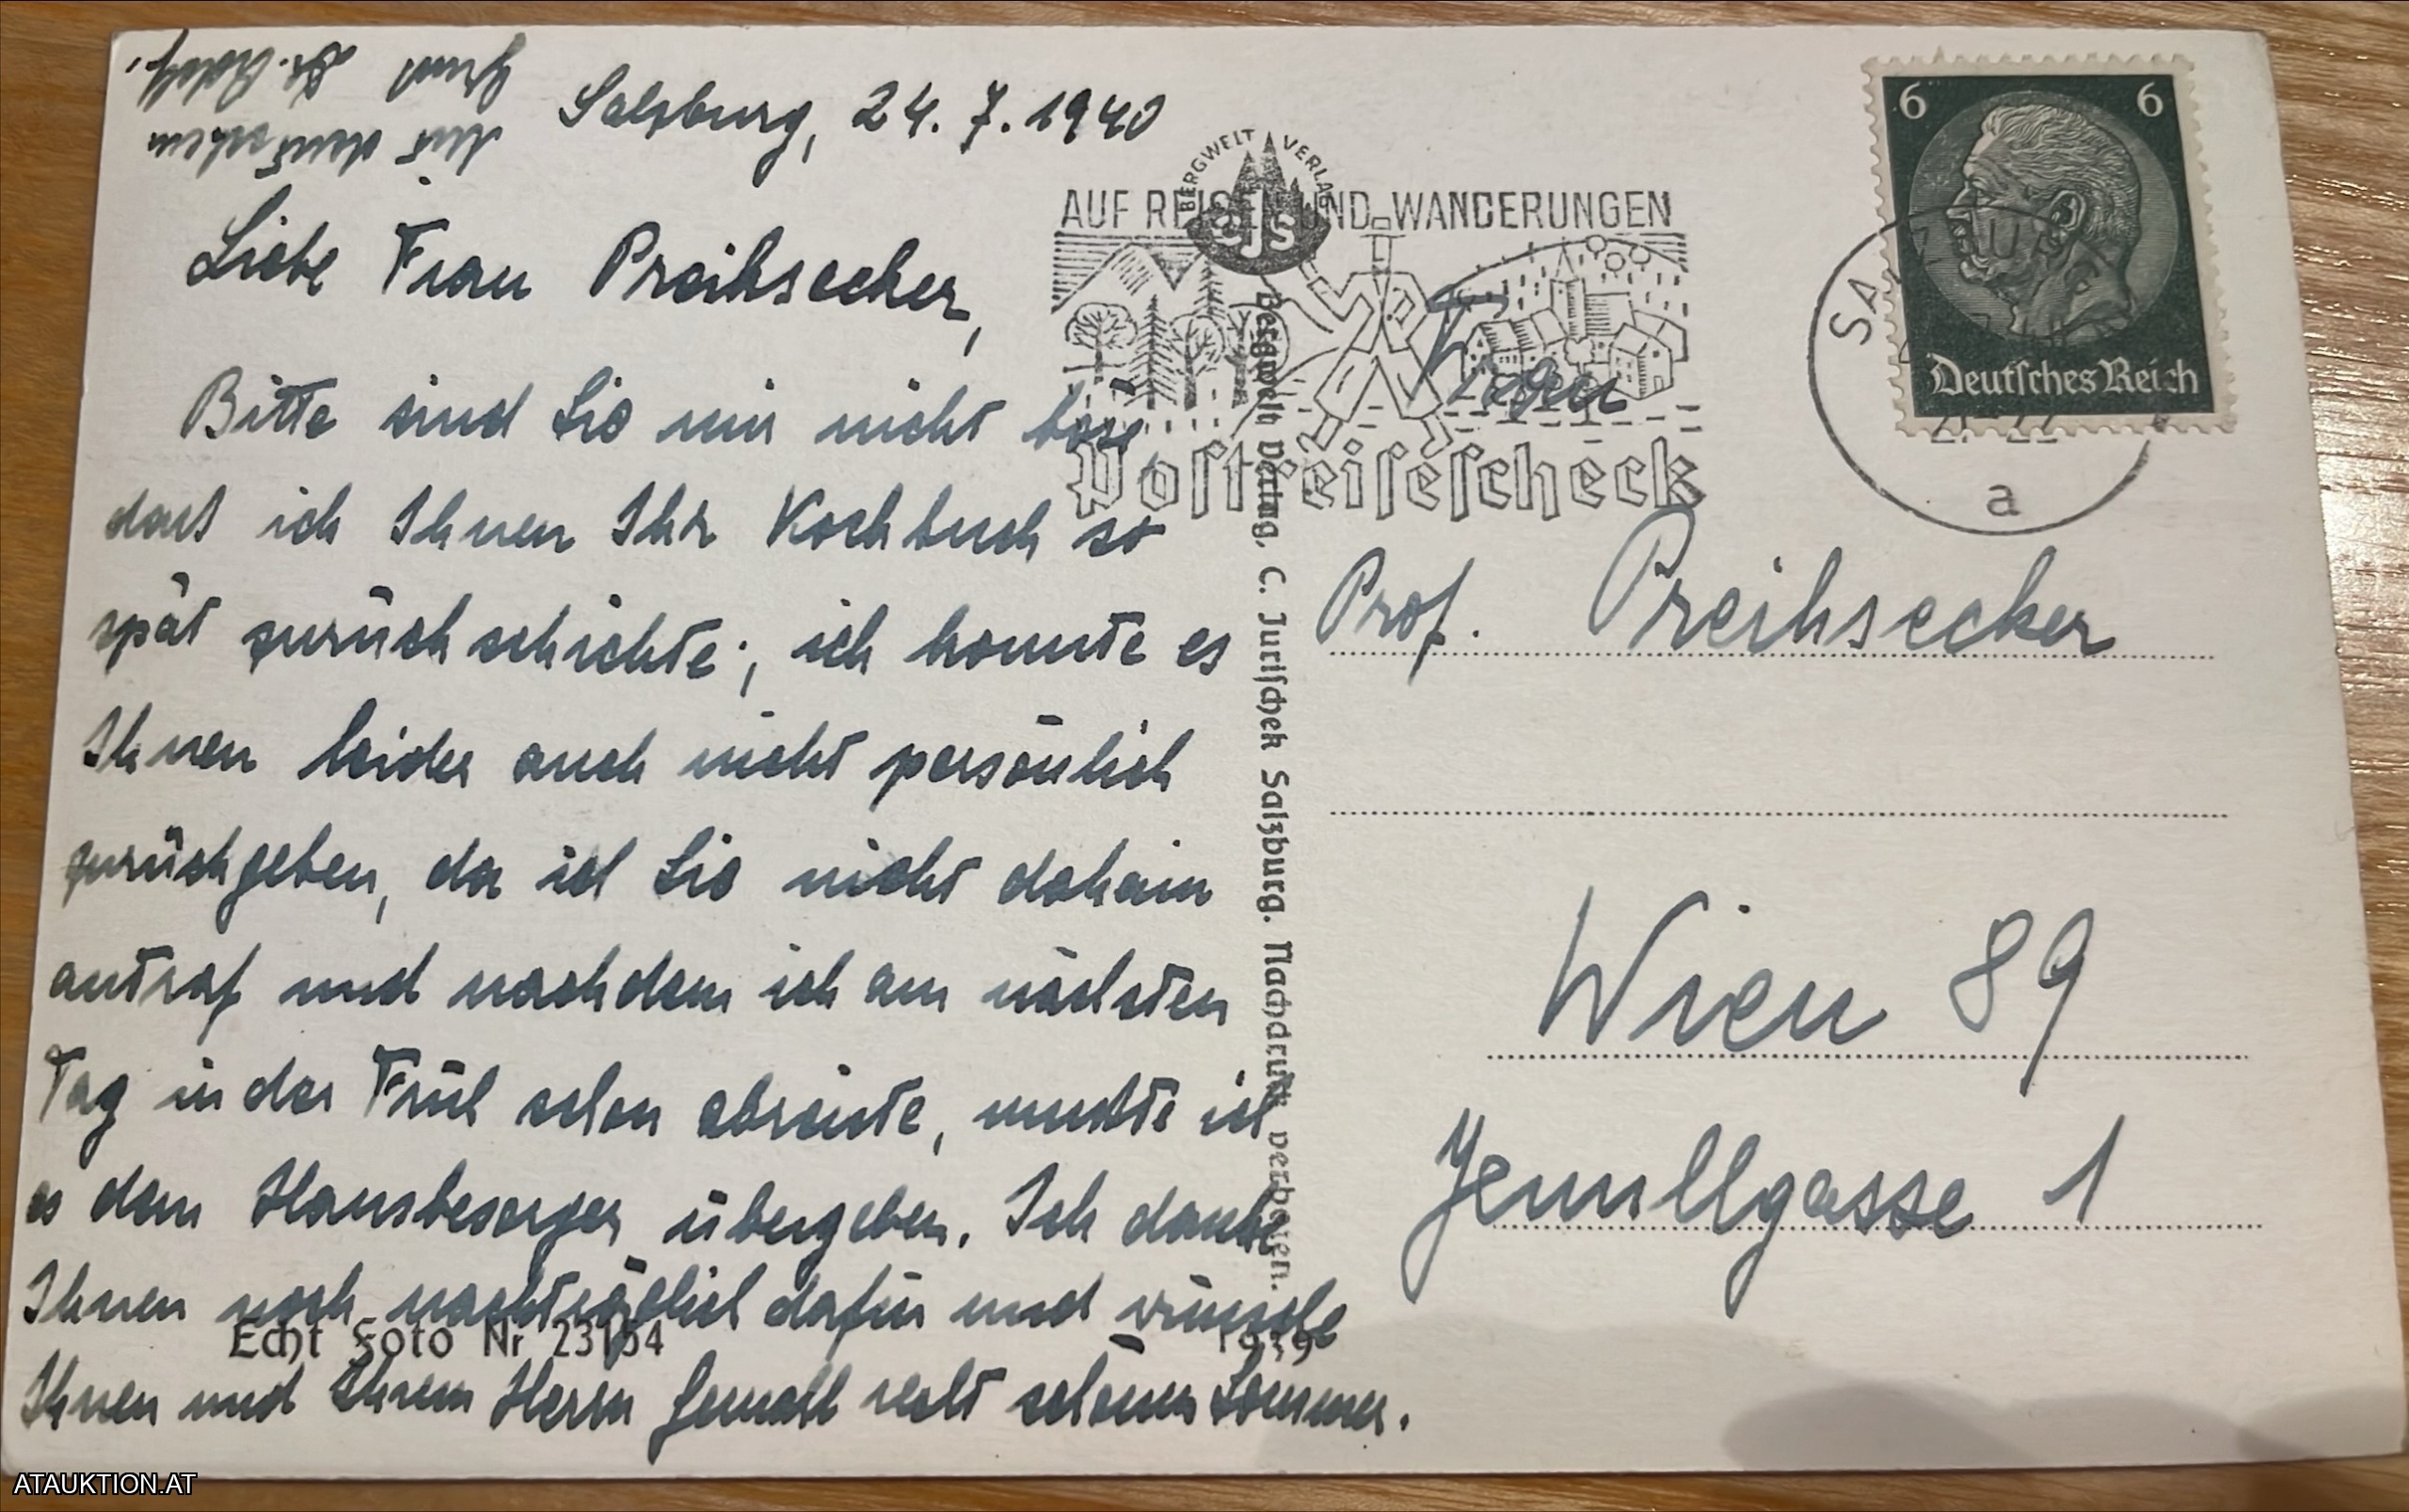 Salzburg, 24. 7. 1940
Liebe Frau Preihsecker,
Bitte sind Sie mir nicht böse,
dass ich Ihnen Ihr Kochbuch so
spät zurückschickte; ich konnte es
Ihnen leider auch nicht persönlich
zurückgeben, da ich Sie nicht daheim
antraf und nachdem ich am nächsten
Tag in der Früh schon abreiste, musste ich
es dem Hausbesorger übergeben. Ich danke
Ihnen noch nachträglich dafür und wünsche
Ihnen und Ihrem Herrn Gemahl recht schönen Sommer.
Mit deutschem
Gruß
BERGWELT VERLAG
cjs
AUF REISEN UND WANDERUNGEN
Postreisescheck
Bergwelt Verlag, C. Jurischek Salzburg. Nachdruck verboten.
6 6
Deutsches Reich
SA
a
Frau
Prof. Preihsecker
Wien 89
Jenullgasse 1
Echt Foto Nr 23154
1939
ATAUKTION.AT